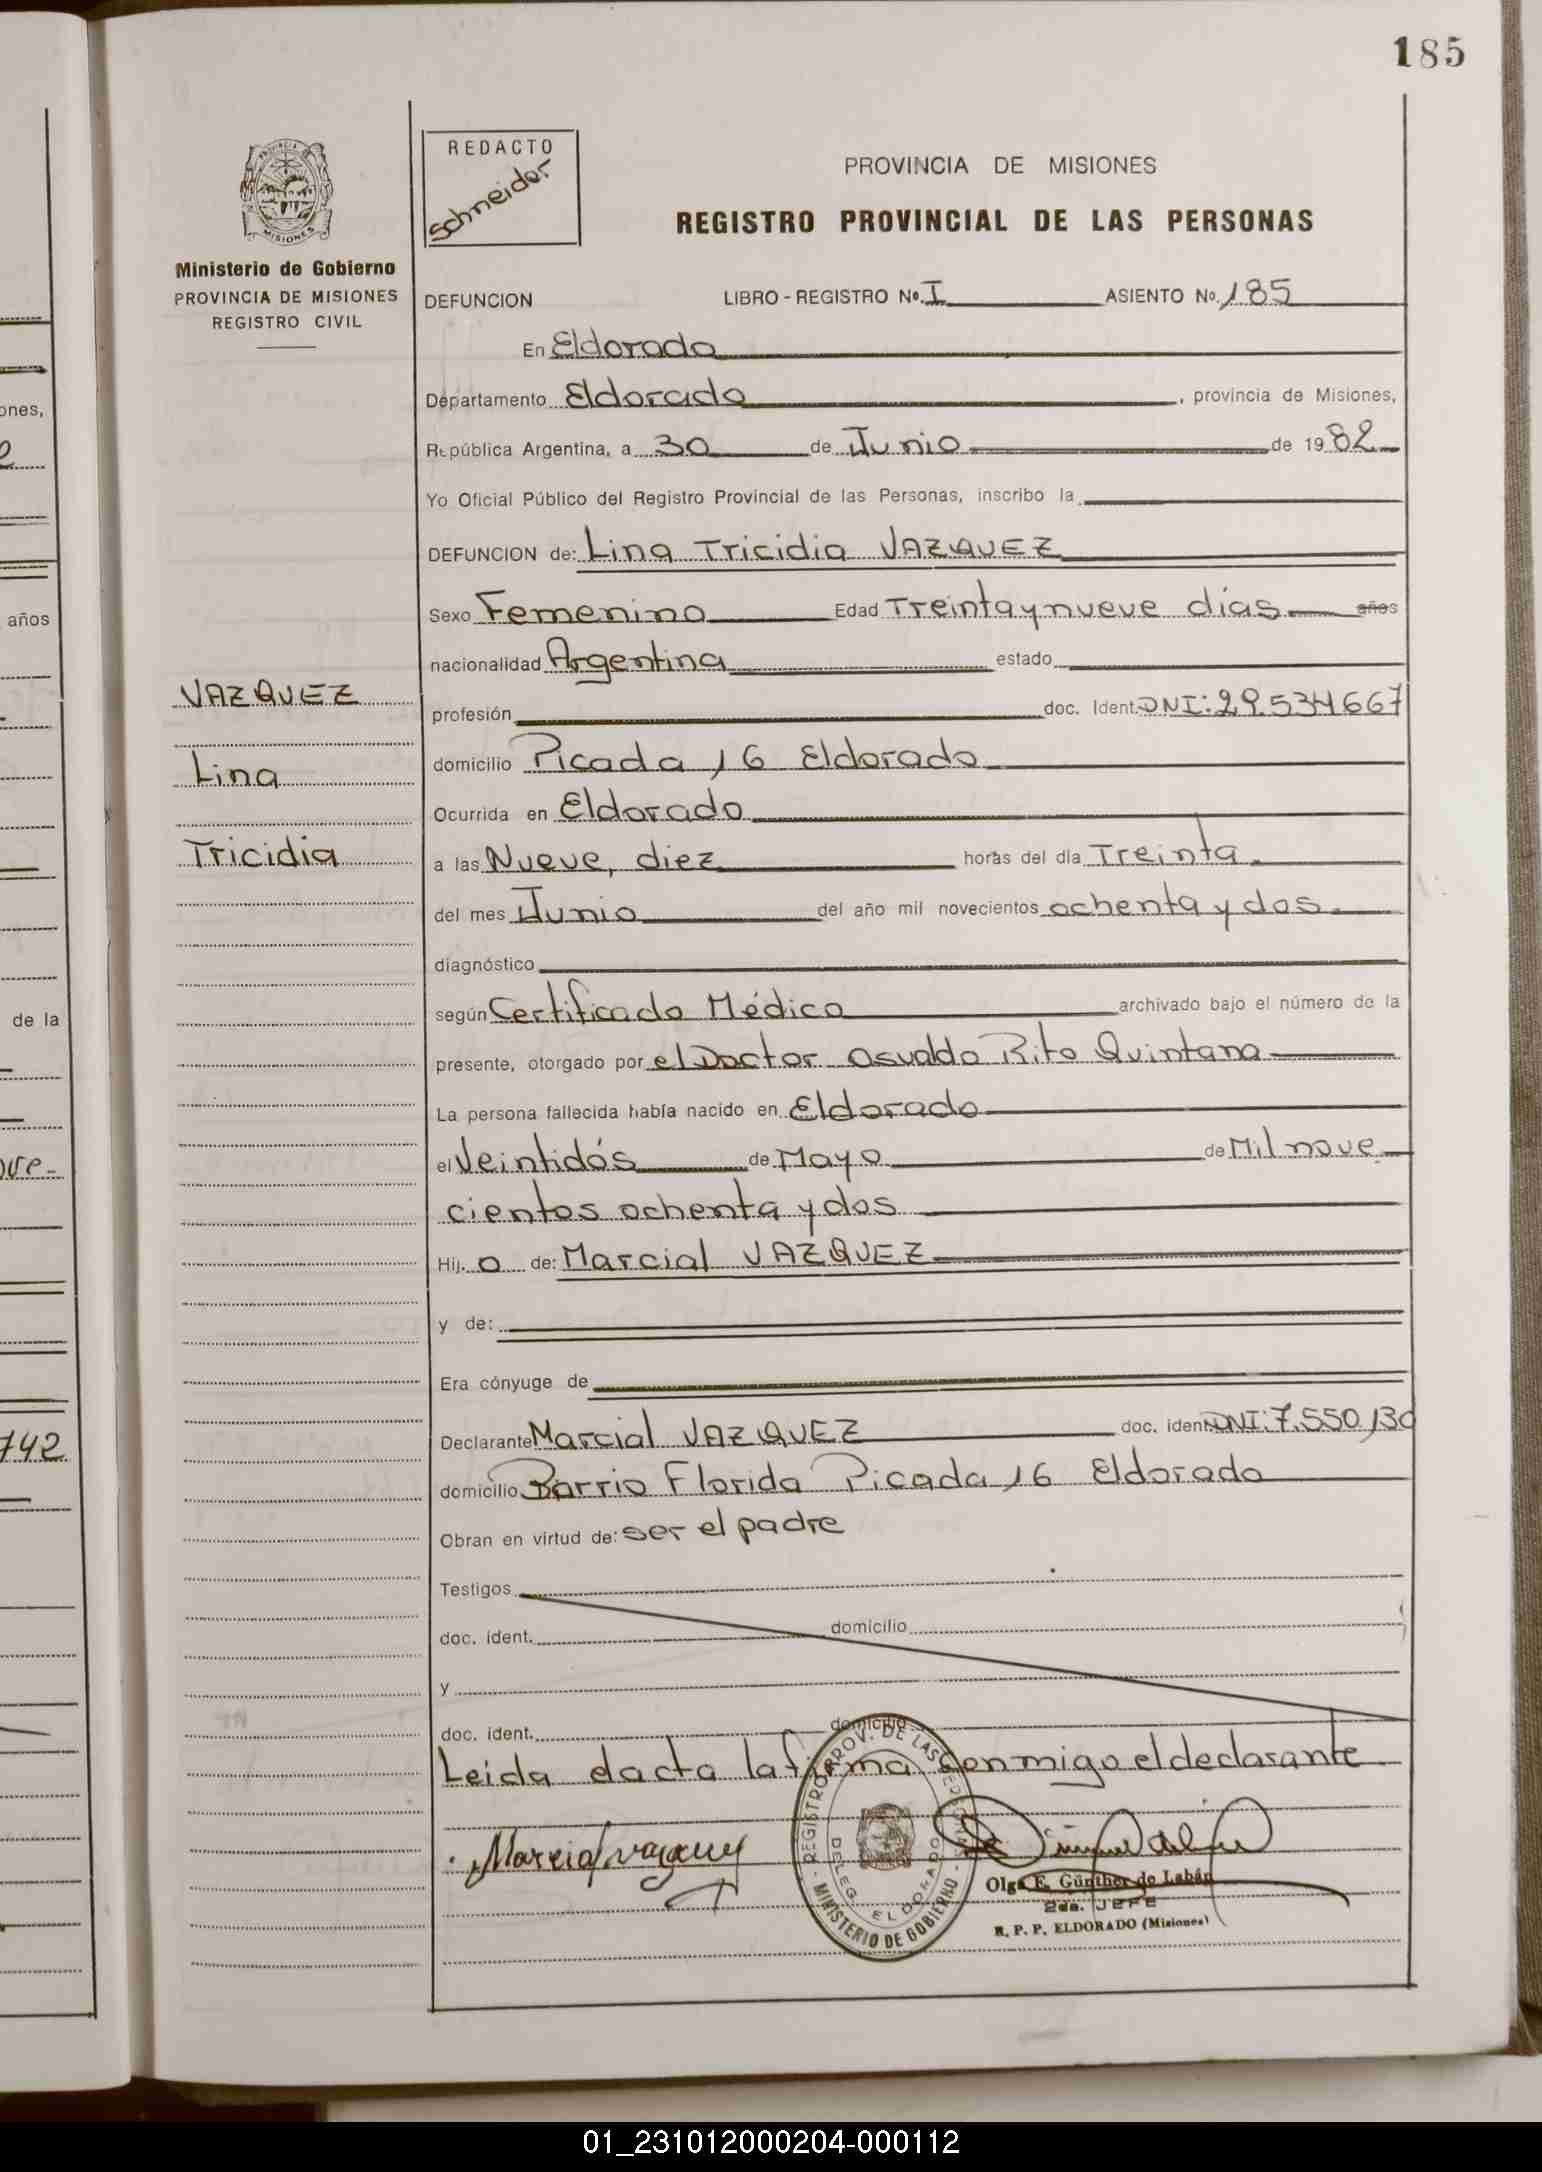 185
PROVINCIA
MISIONES
Ministerio de Gobierno
PROVINCIA DE MISIONES
REGISTRO CIVIL
REDACTO
Schneider
PROVINCIA DE MISIONES
REGISTRO PROVINCIAL DE LAS PERSONAS
DEFUNCION LIBRO-REGISTRO No. I ASIENTO No. 185
En Eldorado
Departamento Eldorado, provincia de Misiones,
República Argentina, a 30 de Junio de 1982
Yo Oficial Público del Registro Provincial de las Personas, inscribo la
DEFUNCION de: Lina Tricidia VAZQUEZ
Sexo Femenino Edad Treinta y nueve días años
nacionalidad Argentina estado
profesión doc. Ident. DNI: 29.534667
domicilio Picada 16 Eldorado
Ocurrida en Eldorado
a las Nueve, diez horas del día Treinta
del mes Junio del año mil novecientos ochenta y dos
diagnóstico
según Certificado Médico archivado bajo el número de la
presente, otorgado por el Doctor Osvaldo Rito Quintana
La persona fallecida había nacido en Eldorado
el Veintidós de Mayo de Mil nove
cientos ochenta y dos
Hij o de: Marcial VAZQUEZ
y de:
Era cónyuge de
Declarante Marcial VAZQUEZ doc. ident. DNI: 7.550,130
domicilio Barrio Florida Picada 16 Eldorado
Obran en virtud de: ser el padre
Testigos
doc. ident. domicilio
y
doc. ident. domicilio
Leida el acta la firma conmigo el declarante
Marcial Vazquez
REGISTRO PROV. DE LAS PERSONAS
DELEG. ELDORADO
MINISTERIO DE GOBIERNO
Olga E. Günther de Labán
2da. JEFE
R. P. P. ELDORADO (Misiones)
VAZQUEZ
Lina
Tricidia
ones,
años
de la
742
01_231012000204-000112